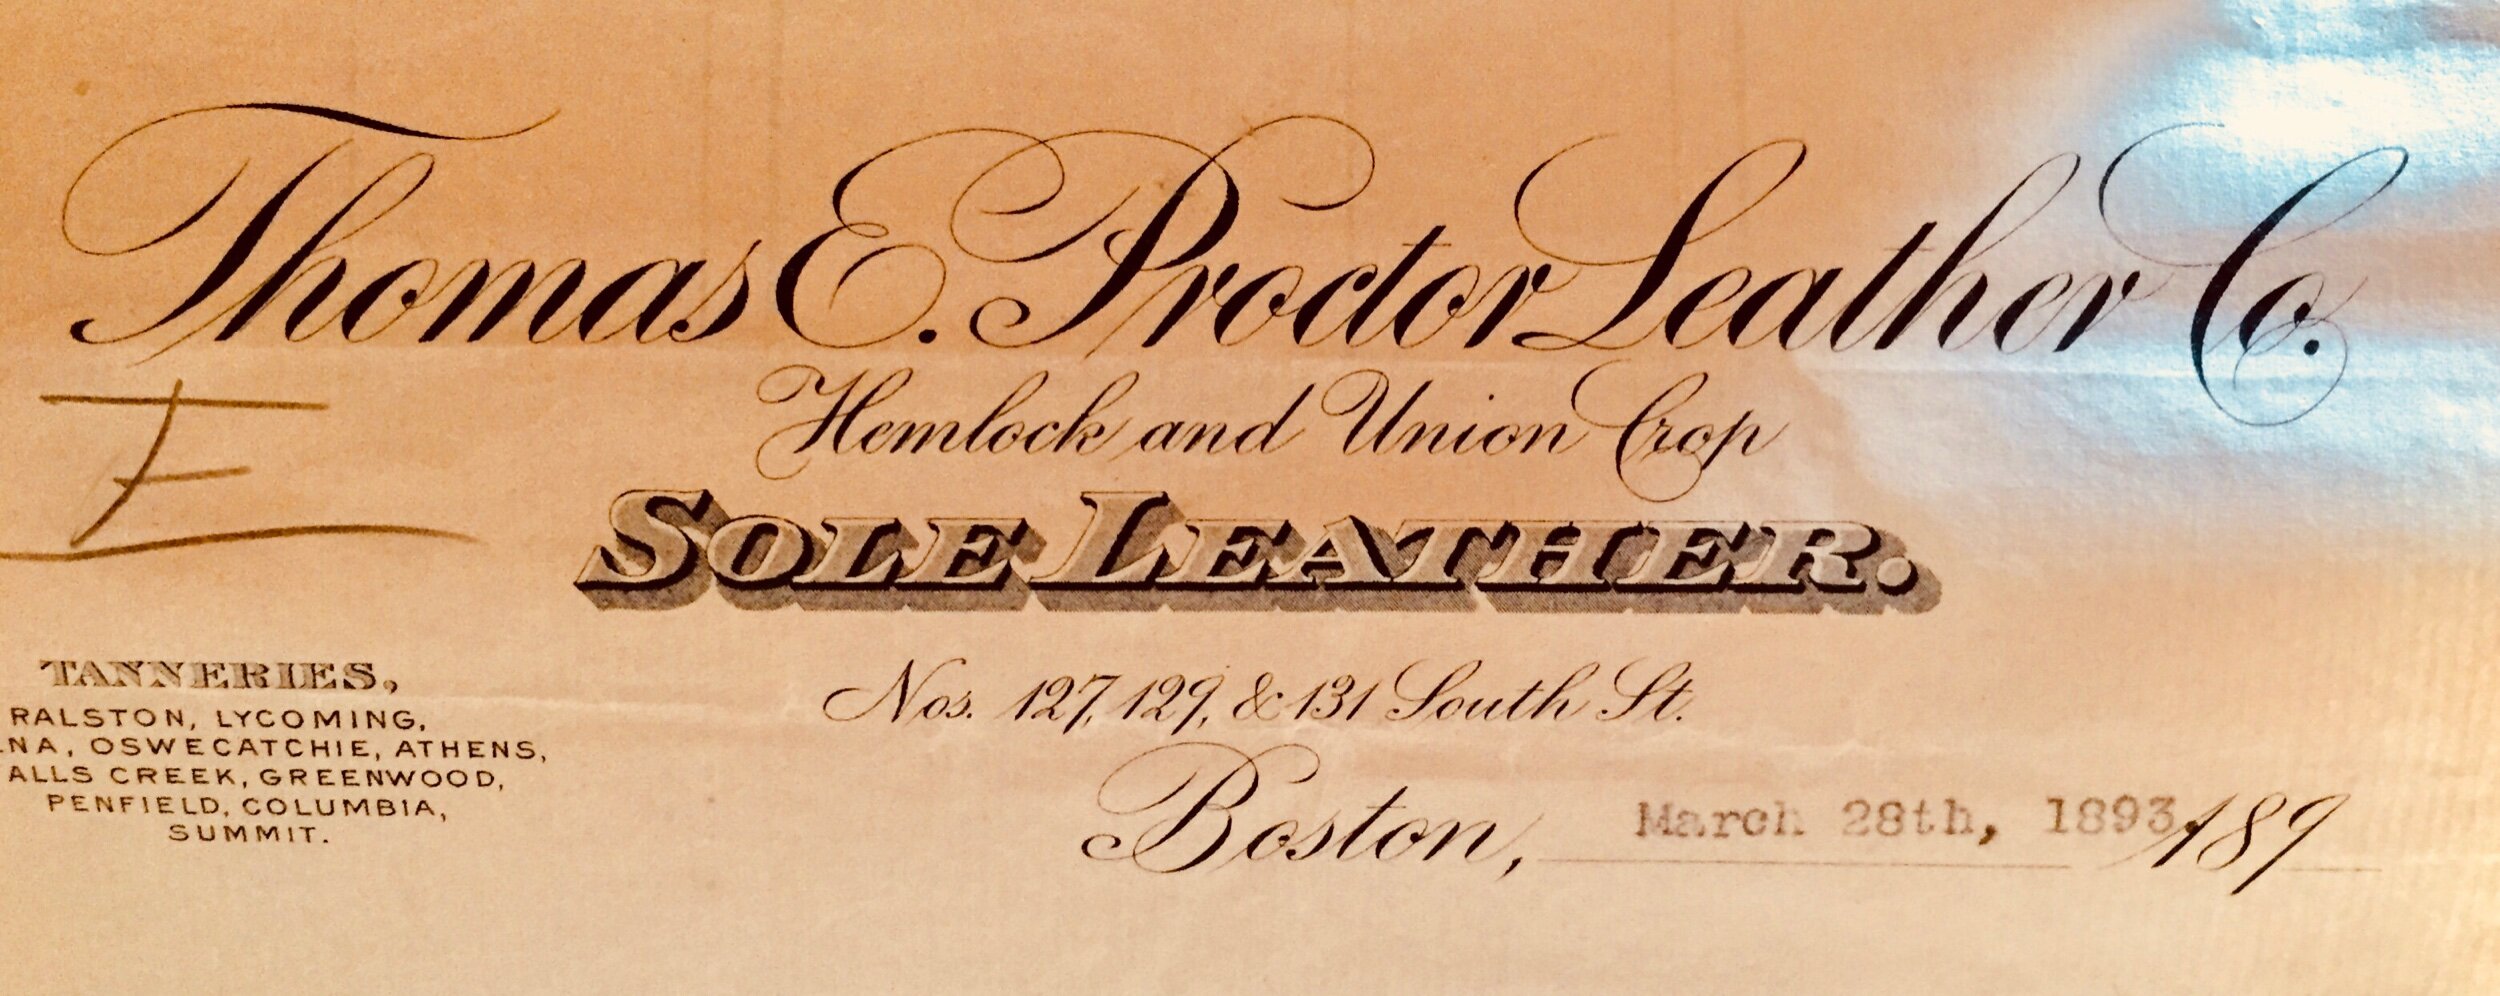 Thomas E. Proctor Leather Co.
Hemlock and Union Crop
SOLE LEATHER.
TANNERIES,
RALSTON, LYCOMING,
OSWECATCHIE, ATHENS,
CREEK, GREENWOOD,
PENFIELD, COLUMBIA,
SUMMIT.
Nos. 127, 129, & 131 South St.
Boston, March 28th, 1893. 189